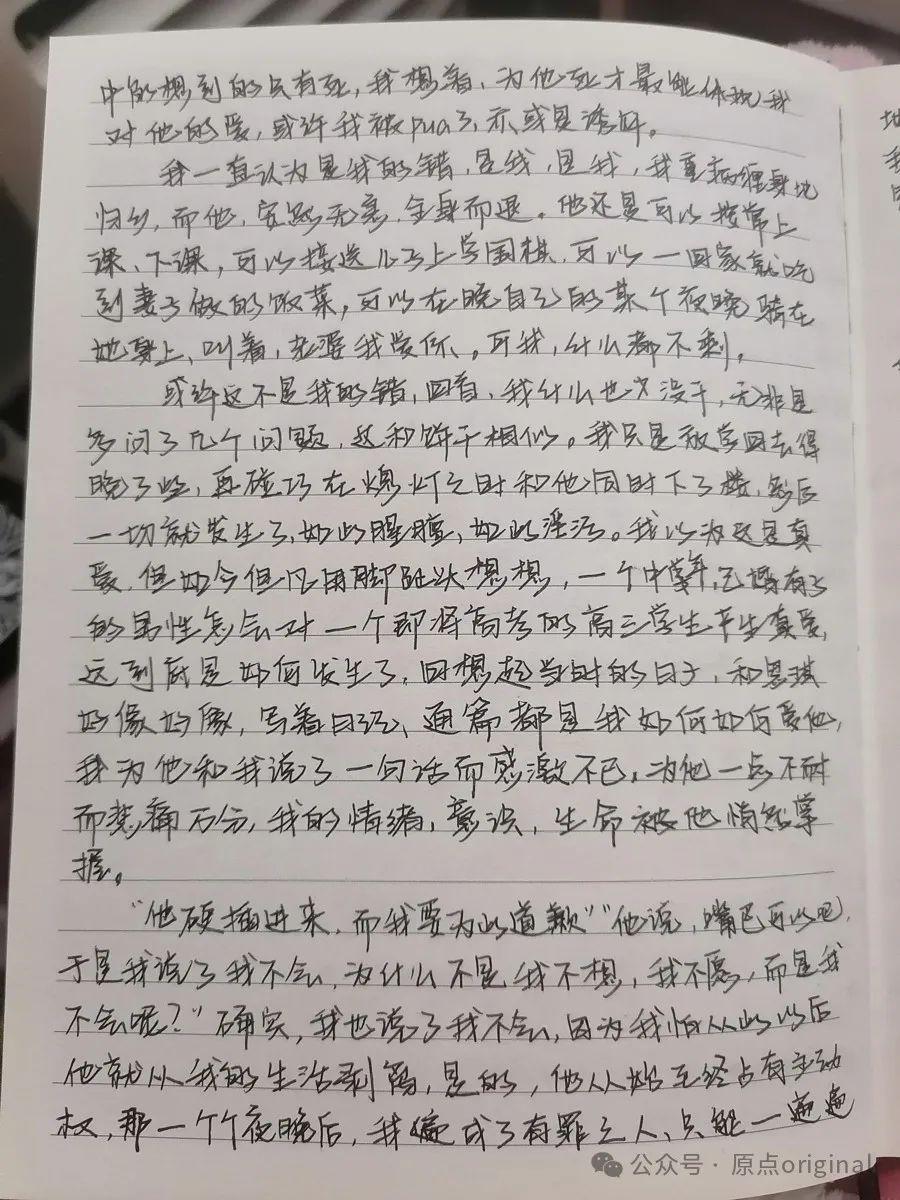 中能想到的只有死，我想着，为他死才最能体现我
对他的爱，或许我被pua了，亦或是诱奸。
我一直认为是我的错，是我，是我，我重病缠身地
归乡，而他，安然无恙，全身而退。他还是可以按常上
课、下课，可以接送儿子上学围棋，可以一回家就吃
到妻子做的饭菜，可以在晚自习的某个夜晚骑在
她身上，叫着，老婆我爱你、。可我，什么都不剩。
或许这不是我的错，回看，我什么也没干，无非是
多问了几个问题，这和饼干相似。我只是放学回去得
晚了些，再碰巧在熄灯之时和他同时下了楼，然后
一切就发生了，如此腥膻，如此淫活。我以为这是真
爱，但如今但凡用脚趾头想想，一个中年，已婚有子
的男性怎会对一个即将高考的高三学生产生真爱，
这到底是如何发生了，回想起当时的日子，和思琪
好像好像，写着日记、通篇都是我如何如何爱他，
我为他和我说了一句话而感激不已，为他一点不耐
而悲痛万分，我的情绪，意识，生命被他悄然掌
握。
“他硬插进来，而我要为此道歉”“他说，嘴巴可以吧，
于是我说了我不会，为什么不是我不想，我不愿，而是我
不会呢？”确实，我也说了我不会，因为我怕从此以后
他就从我的生活剥离，是的，他从始至终占有主动
权，那一个个夜晚后，我便成了有罪之人、只能一遍遍
地
我
公众号·原点original